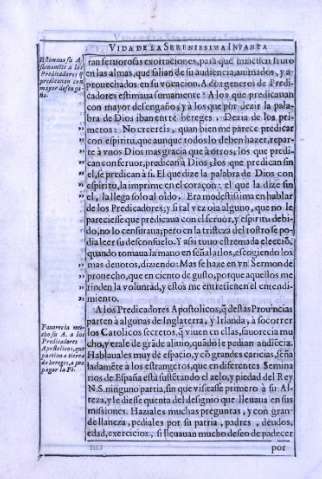 VIDA DE LA SERENISSIMA INFANTA
Estimaua su A.
sumamente a los
Predicadores q̃
predicauan con
mayor desenga-
ño.
tan feruorosas exortaciones, para que hiziessen fruto
en las almas, que salian de su audiencia, animados, y a-
prouechados en su vocacion. A este genero de Predi-
cadores estimaua sumamente: A los que predicauan
con mayor desengaño; y a los que por dezir la pala-
bra de Dios iban entre hereges. Dezia de los pri-
meros: No creereis, quan bien me parece predicar
con espiritu, que aunque todos lo deben hazer, repar-
te a vnos Dios mas gracia que a otros; los que predi-
can con feruor, predican a Dios; los que predican sin
el, se predican a si. El que dize la palabra de Dios con
espiritu, la imprime en el coraçon: el que la dize sin
el, la llega solo al oido. Era modestissima en hablar
de los Predicadores; y si tal vez oia alguno, que no le
pareciesse que predicaua con el feruor, y espiritu debi-
do, no lo censuraua; pero en la tristeza del rostro se po-
dia leer su desconsuelo. Y assi tuuo estremada elecciõ,
quando tomaua la mano en señalarlos, escogiendo los
mas deuotos, diziendo: Mas se haze en vn Sermon de
prouecho, que en ciento de gusto, porque aquellos me
rinden la voluntad, y estos me entretienen el entendi-
miento.
Fauorecia mu-
cho su A. a los
Predicadores
Apostolicos, que
partian a tierra
de hereges, a pro-
pagar la Fè.
A los Predicadores Apostolicos, q̃ destas Prouincias
parten à algunas de Inglaterra, y Irlanda, à socorrer
los Catolicos secretos, q̃ viuen en ellas, fauorecia mu-
cho, y erale de grãde aliuio, quando le pedian audiẽcia.
Hablauales muy de espacio, y cõ grandes caricias, seña
ladamẽte à los estrangeros, que en diferentes Semina
rios de España està sustẽtando el zelo, y piedad del Rey
N.S. ninguno partia, sin que visitasse primero à su Al-
teza, y le diesse quenta del designio que lleuaua en sus
missiones. Haziales muchas preguntas, y con gran-
de llaneza, pediales por su patria, padres, deudos,
edad, exercicios, si lleuauan mucho deseo de padecer
por